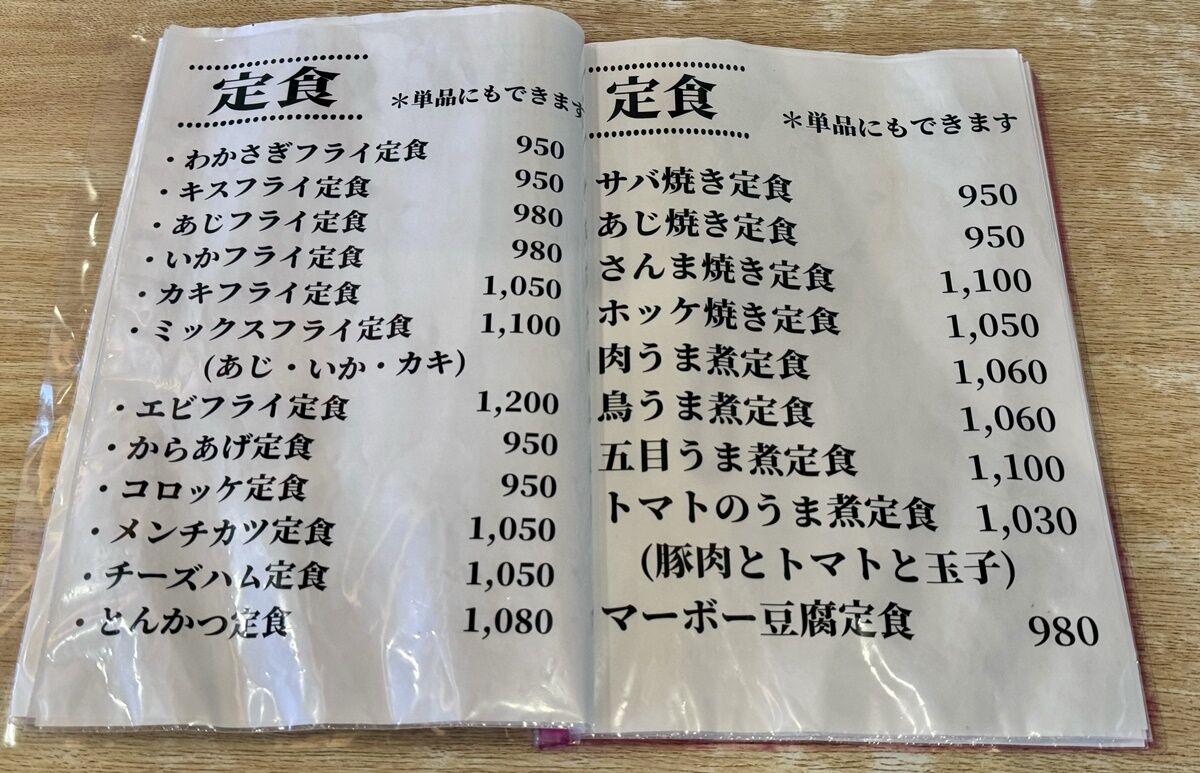 定食 *単品にもできます
・わかさぎフライ定食 950
・キスフライ定食 950
・あじフライ定食 980
・いかフライ定食 980
・カキフライ定食 1,050
・ミックスフライ定食 1,100
(あじ・いか・カキ)
・エビフライ定食 1,200
・からあげ定食 950
・コロッケ定食 950
・メンチカツ定食 1,050
・チーズハム定食 1,050
・とんかつ定食 1,080
定食 *単品にもできます
サバ焼き定食 950
あじ焼き定食 950
さんま焼き定食 1,100
ホッケ焼き定食 1,050
肉うま煮定食 1,060
鳥うま煮定食 1,060
五目うま煮定食 1,100
トマトのうま煮定食 1,030
(豚肉とトマトと玉子)
マーボー豆腐定食 980